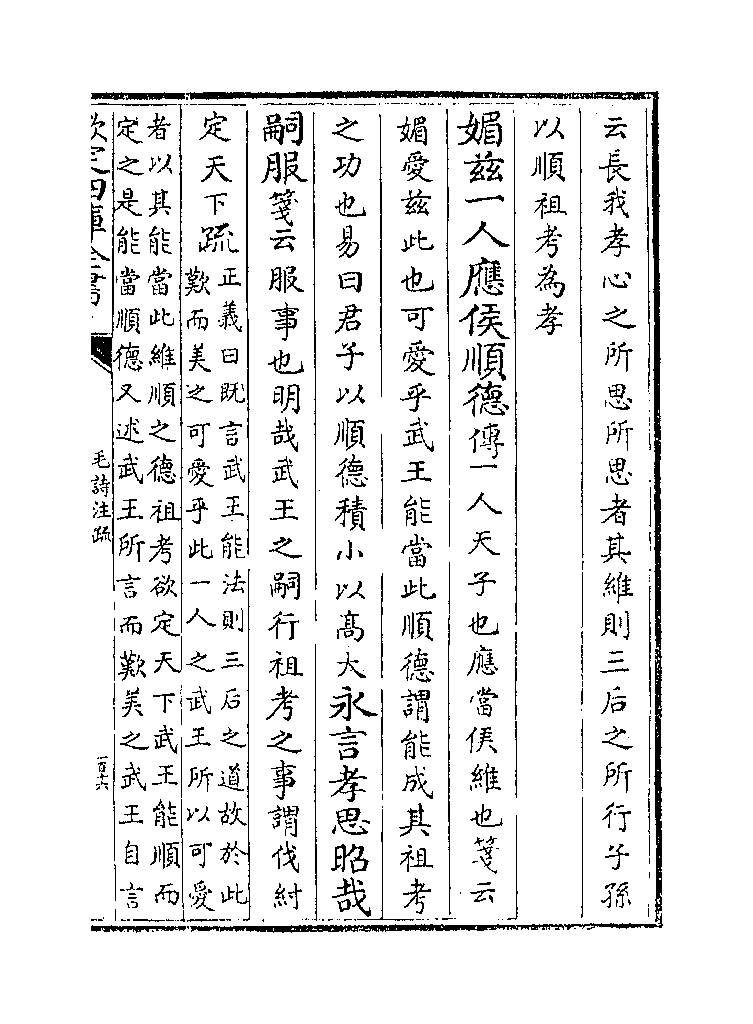 云長我孝心之所思所思者其維則三后之所行子孫
以順祖考為孝
媚兹一人應侯順德傳一人天子也應當侯維也箋云
媚愛兹此也可愛乎武王能當此順德謂能成其祖考
之功也易曰君子以順德積小以髙大永言孝思昭哉
嗣服箋云服事也明哉武王之嗣行祖考之事謂伐紂
定天下疏正義曰既言武王能法則三后之道故於此
歎而美之可愛乎此一人之武王所以可愛
者以其能當此維順之德祖考欲定天下武王能順而
定之是能當順德又述武王所言而歎美之武王自言
欽定四庫全書
毛詩注疏
一百六